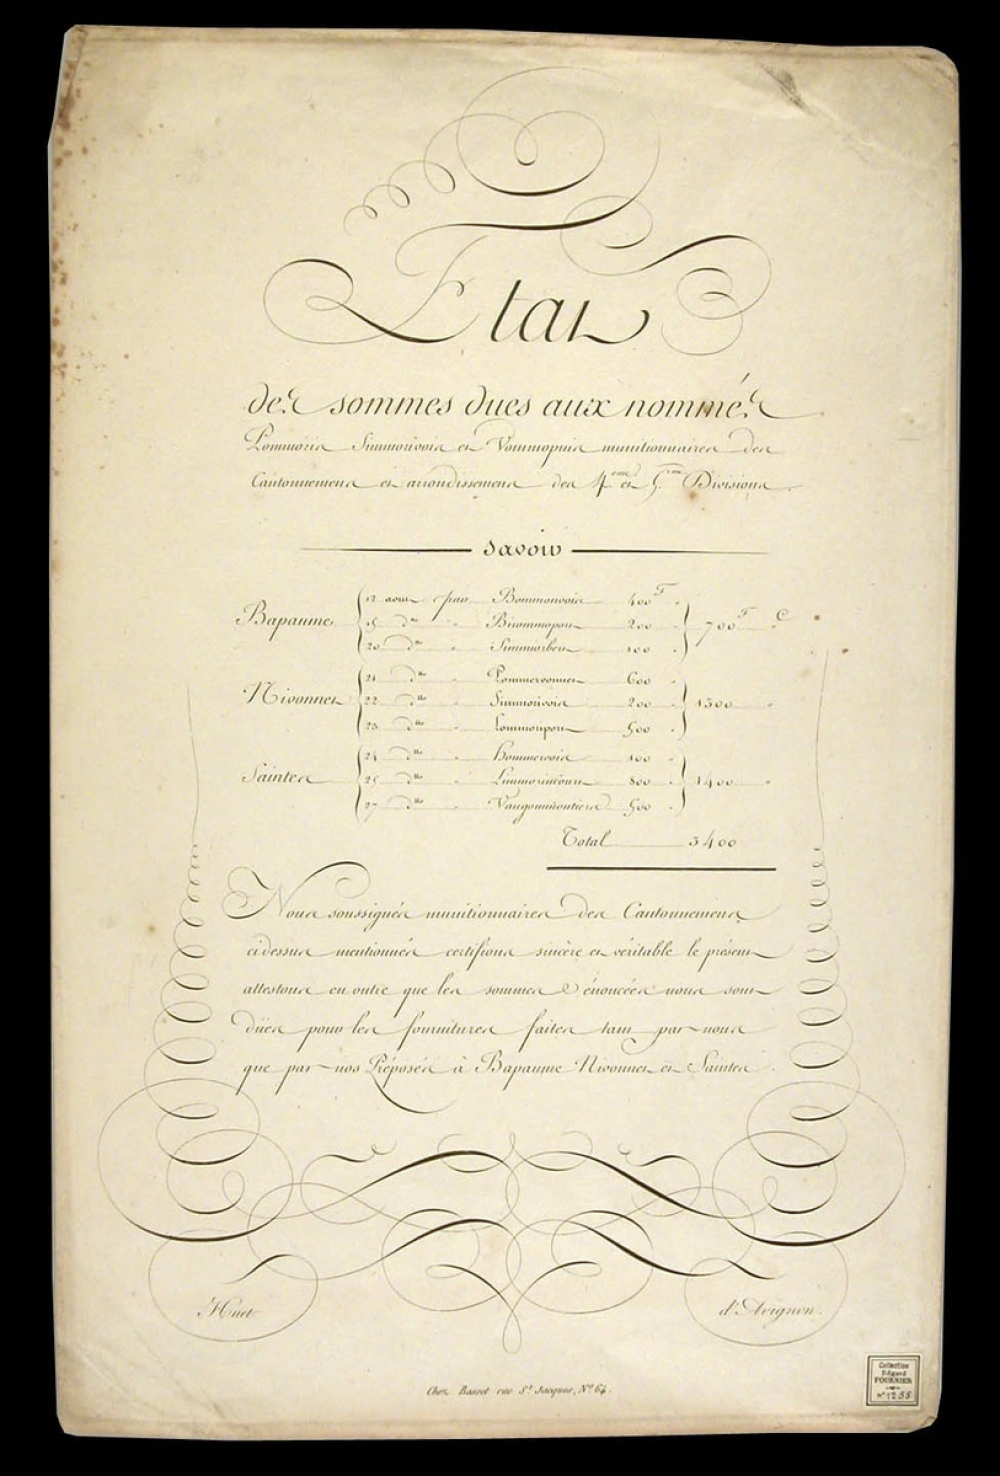 Etat
des sommes dues aux nommés
Simmorivoir et munitionnaires des
Cantonnemens et arrondissemens des 4.eme et 5.eme Divisions
Savoir
Bapaume 12 aout par Bommonvoir 400 F
15 d.to " Birommopont 200 "
20 d.to " Simmorbert 100 " 700 F C
Nivonnes 21 d.to " Pommervonnes 600
22 d.to " Simmorivoir 200 "
23 d.to " Lommoripont 500 " 1300 "
Saintes 24 d.to " Hommervoir 100
25 d.to " Limmorincourt 800 "
27 d.to " Vaugommontiers 500 " 1400 "
Total 3400
Nous soussignés munitionnaires des Cantonnemens
cidessus mentionnés certifions sincère et véritable le présent
attestons en outre que les sommes énoncées nous sont
dües pour les fournitures faites tant par nous
que par nos Préposés à Bapaume Nivonnes et Saintes.
Huet
d'Avignon.
Chez Basset rue S.t Jacques, N.o 64.
Collection
Edgard
FOURNIER
N° 1255